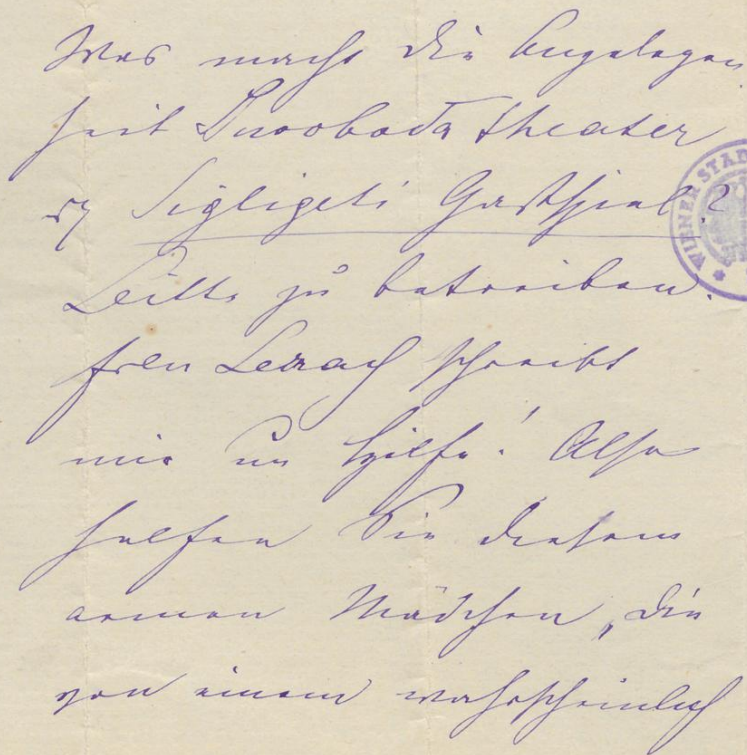 Was macht die Angelegen
heit Swoboda Theater
Sigligeti Gastspiel?
Bitte zu betreiben.
Frln Lerach schreibt
mir um Hilfe! Also
helfen Sie diesem
armen Mädchen, die
von einem wahrscheinlich
WIENER STAD